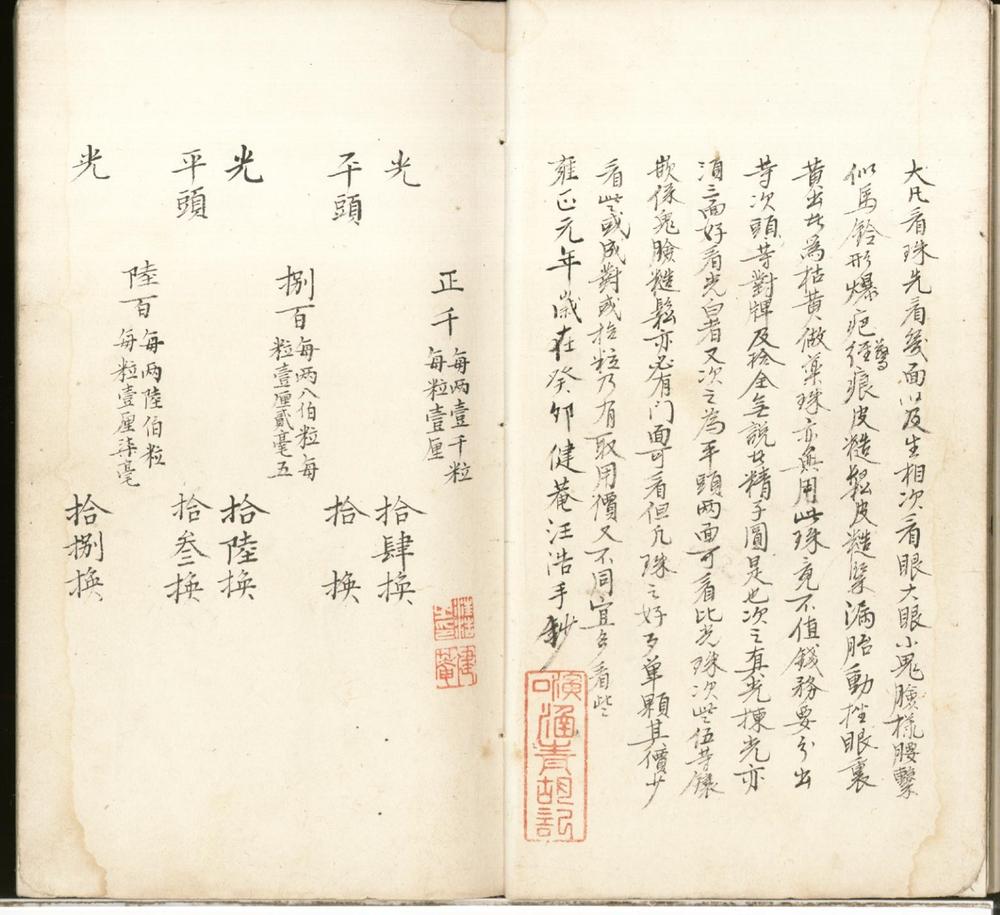 大凡看珠先看幾面以及生相次看眼大眼小鬼臉樣腰
似馬鈴形爆疤痕皮糙鬆皮糙緊漏胎動挫眼裏
黄出此為枯黄做藥珠亦無用此珠竟不值錢務要分出
等次頭等對牌及拾全無說其精子圓是也次之真光揀光亦
須三面好看光白者又次之為平頭两面可看比光珠次些伍等鑲
嵌像鬼臉糙鬆亦必有门面可看但凡珠之好歹單顆其價少
看些或成對或拾粒乃有取用價又不同宜多看些
雍正元年歲在癸卯健菴汪浩手鈔
正千
每两壹千粒
每粒壹厘
光
拾肆换
平頭
拾换
捌百
每两八伯粒每
粒壹厘貳毫五
光
拾陸换
平頭
拾叁换
陸百
每两陸伯粒
每粒壹厘柒毫
光
拾捌换